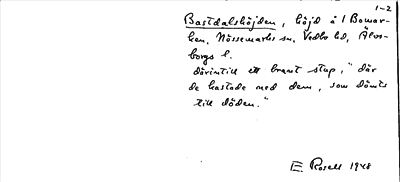 1-2
Bastdalshöjden, höjd å 1 Bowar-
ken, Nössemarks sn, Vedbo hd, Älvs-
borgs l.
därintill ett brant stup, "där
de kastade ned dem, som dömts
till döden."
E. Rosell 1948